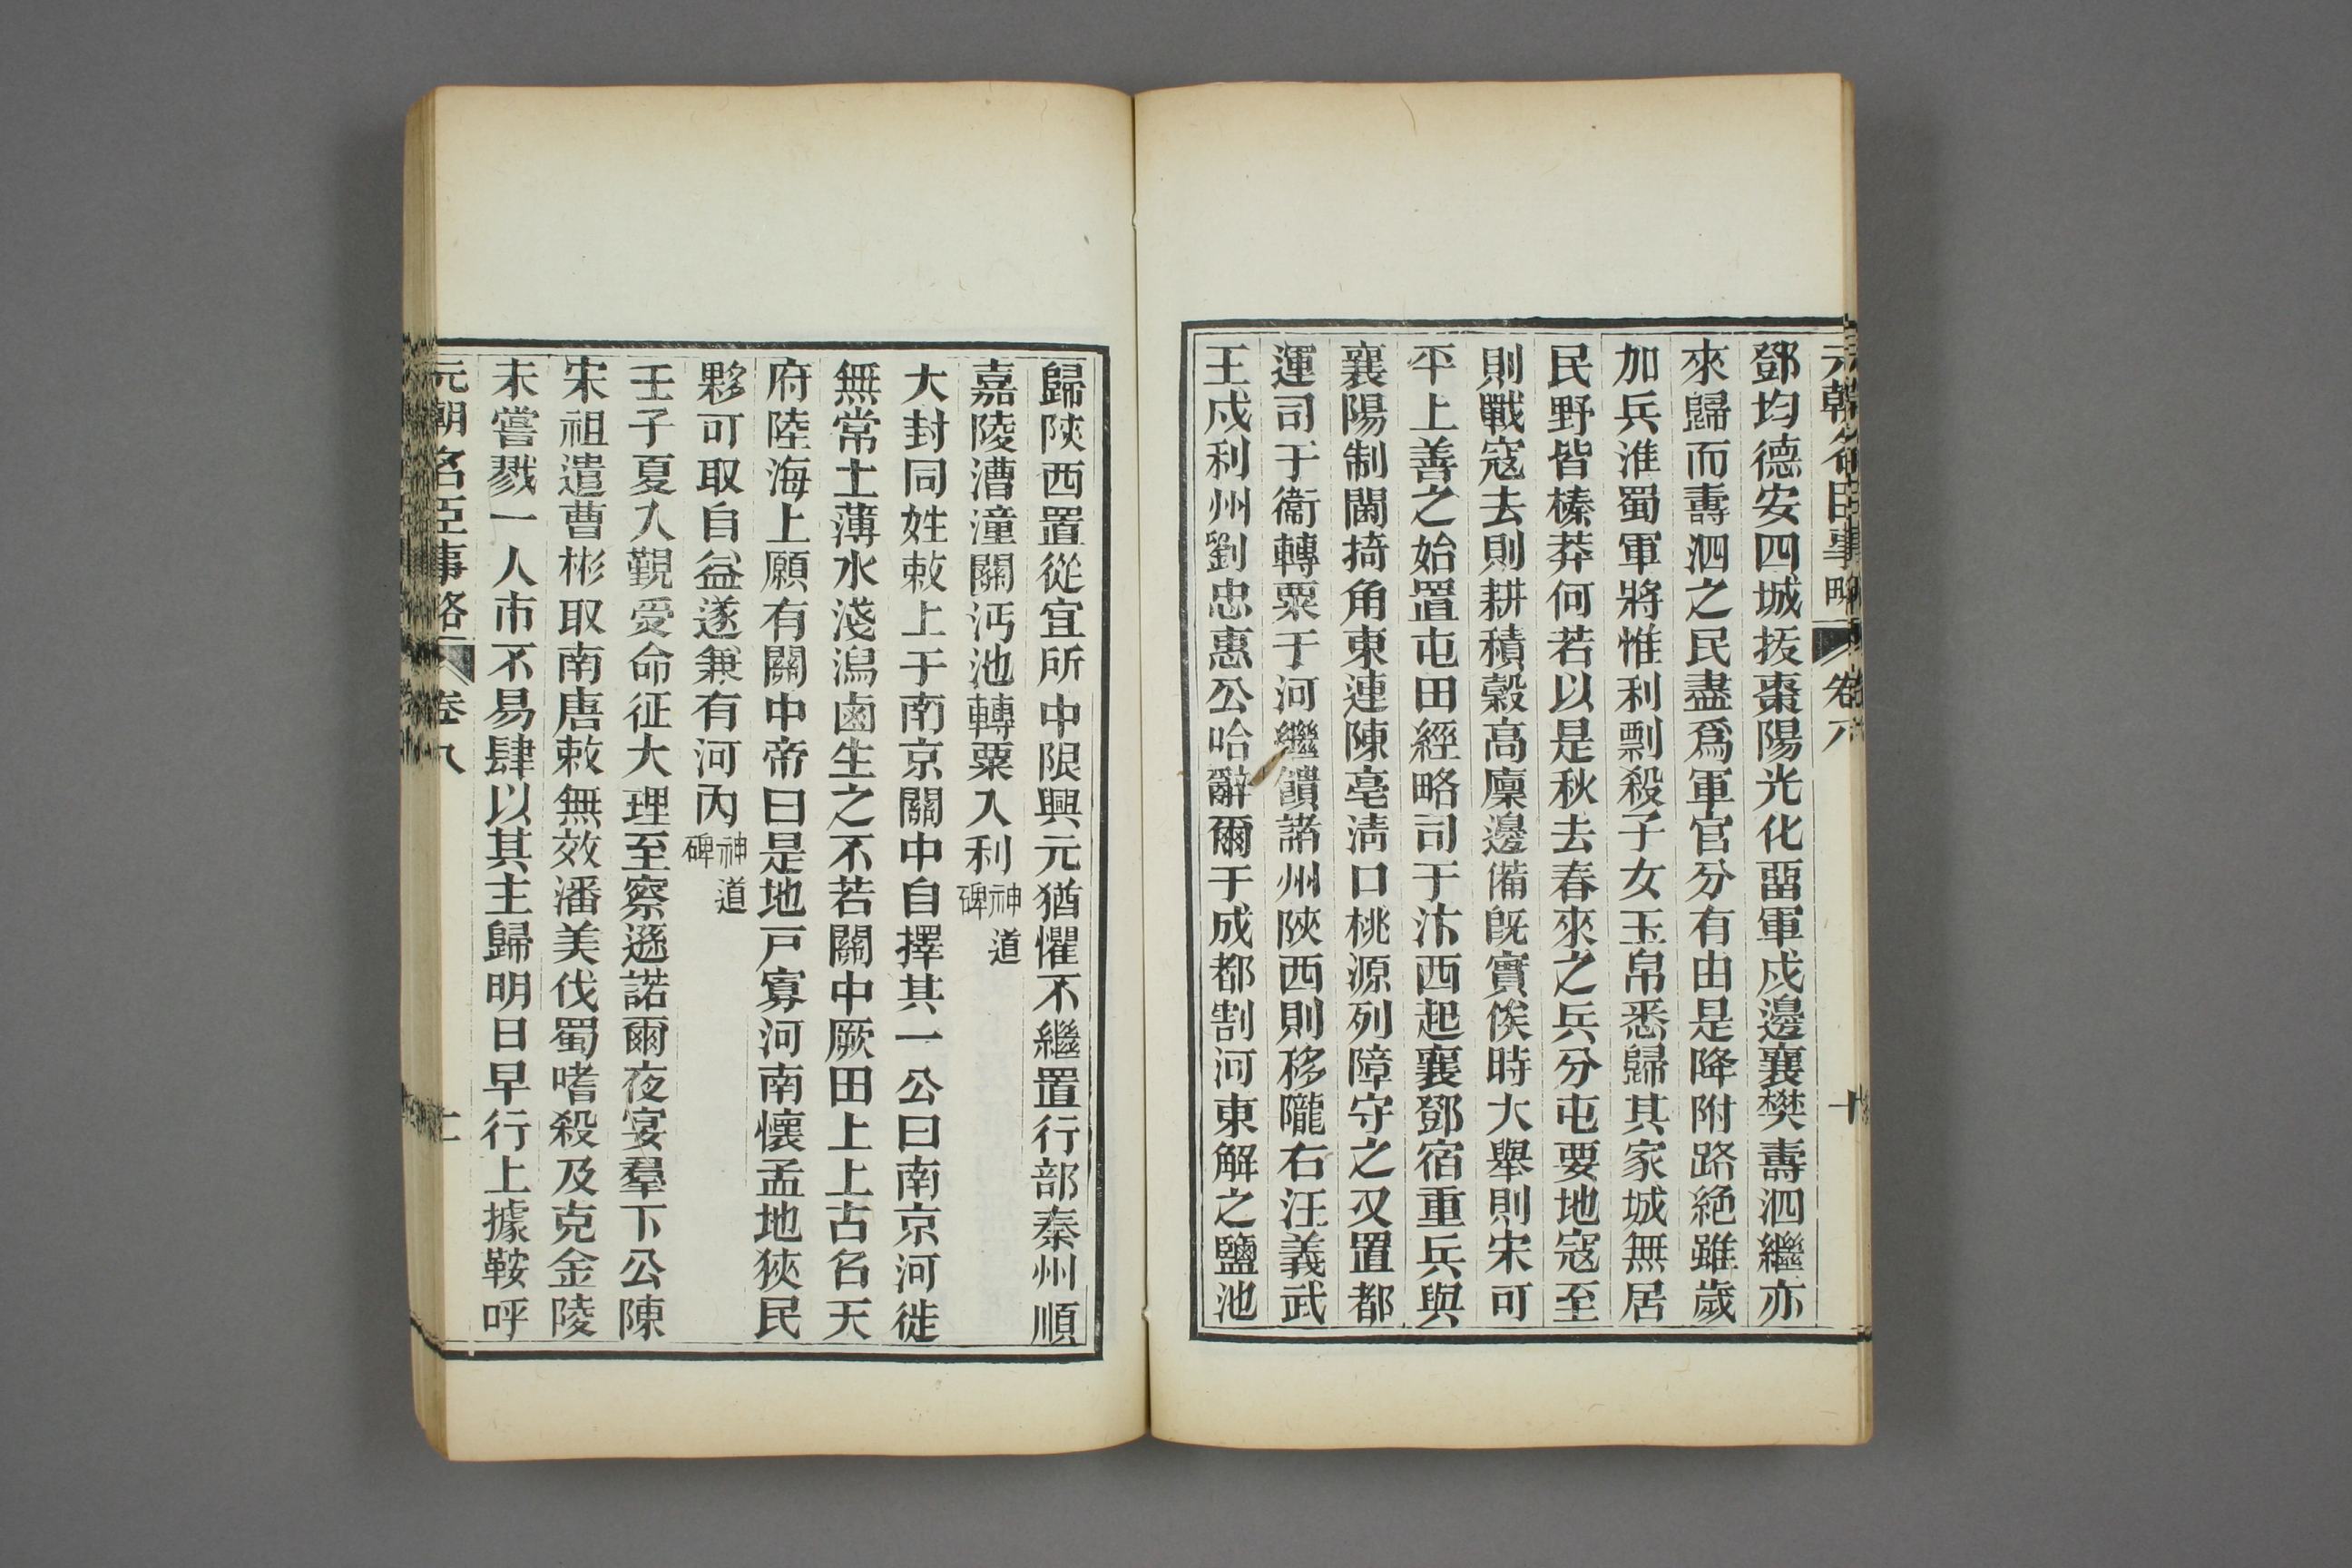 元朝名臣事略 卷八 十
鄧均德安四城拔棗陽光化畱軍戍邊襄樊壽泗繼亦
來歸而壽泗之民盡爲軍官分有由是降附路絶雖歲
加兵淮蜀軍將惟利剽殺子女玉帛悉歸其家城無居
民野皆榛莽何若以是秋去春來之兵分屯要地寇至
則戰寇去則耕積穀高廩邊備旣實俟時大舉則宋可
平上善之始置屯田經略司于汴西起襄鄧宿重兵與
襄陽制閫掎角東連陳亳淸口桃源列障守之又置都
運司于衞轉粟于河繼饋諸州陝西則移隴右汪義武
王戍利州劉忠惠公哈辭爾于成都割河東解之鹽池
歸陝西置從宜所中限興元猶懼不繼置行部秦州順
嘉陵漕潼關沔池轉粟入利神道碑
大封同姓敕上于南京關中自擇其一公曰南京河徙
無常土薄水淺潟鹵生之不若關中厥田上上古名天
府陸海上願有關中帝曰是地戸寡河南懷孟地狹民
夥可取自益遂兼有河內神道碑
壬子夏入覲受命征大理至察遜諾爾夜宴羣下公陳
宋祖遣曹彬取南唐敕無效潘美伐蜀嗜殺及克金陵
未嘗戮一人市不易肆以其主歸明日早行上據鞍呼
元朝名臣事略 卷八